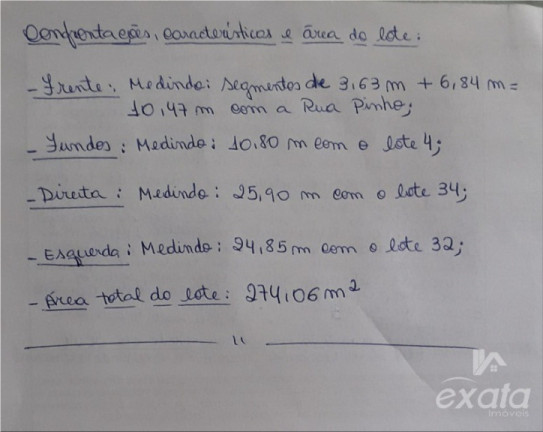 Confrontações, características e área do lote:
- Frente: Medindo: segmentos de 3,63 m + 6,84 m =
10,47 m com a Rua Pinho;
- Fundos: Medindo: 10,80 m com o lote 4;
- Direita: Medindo: 25,90 m com o lote 34;
- Esquerda: Medindo: 24,85 m com o lote 32;
- Área total do lote: 274,06 m²
exata
imóveis